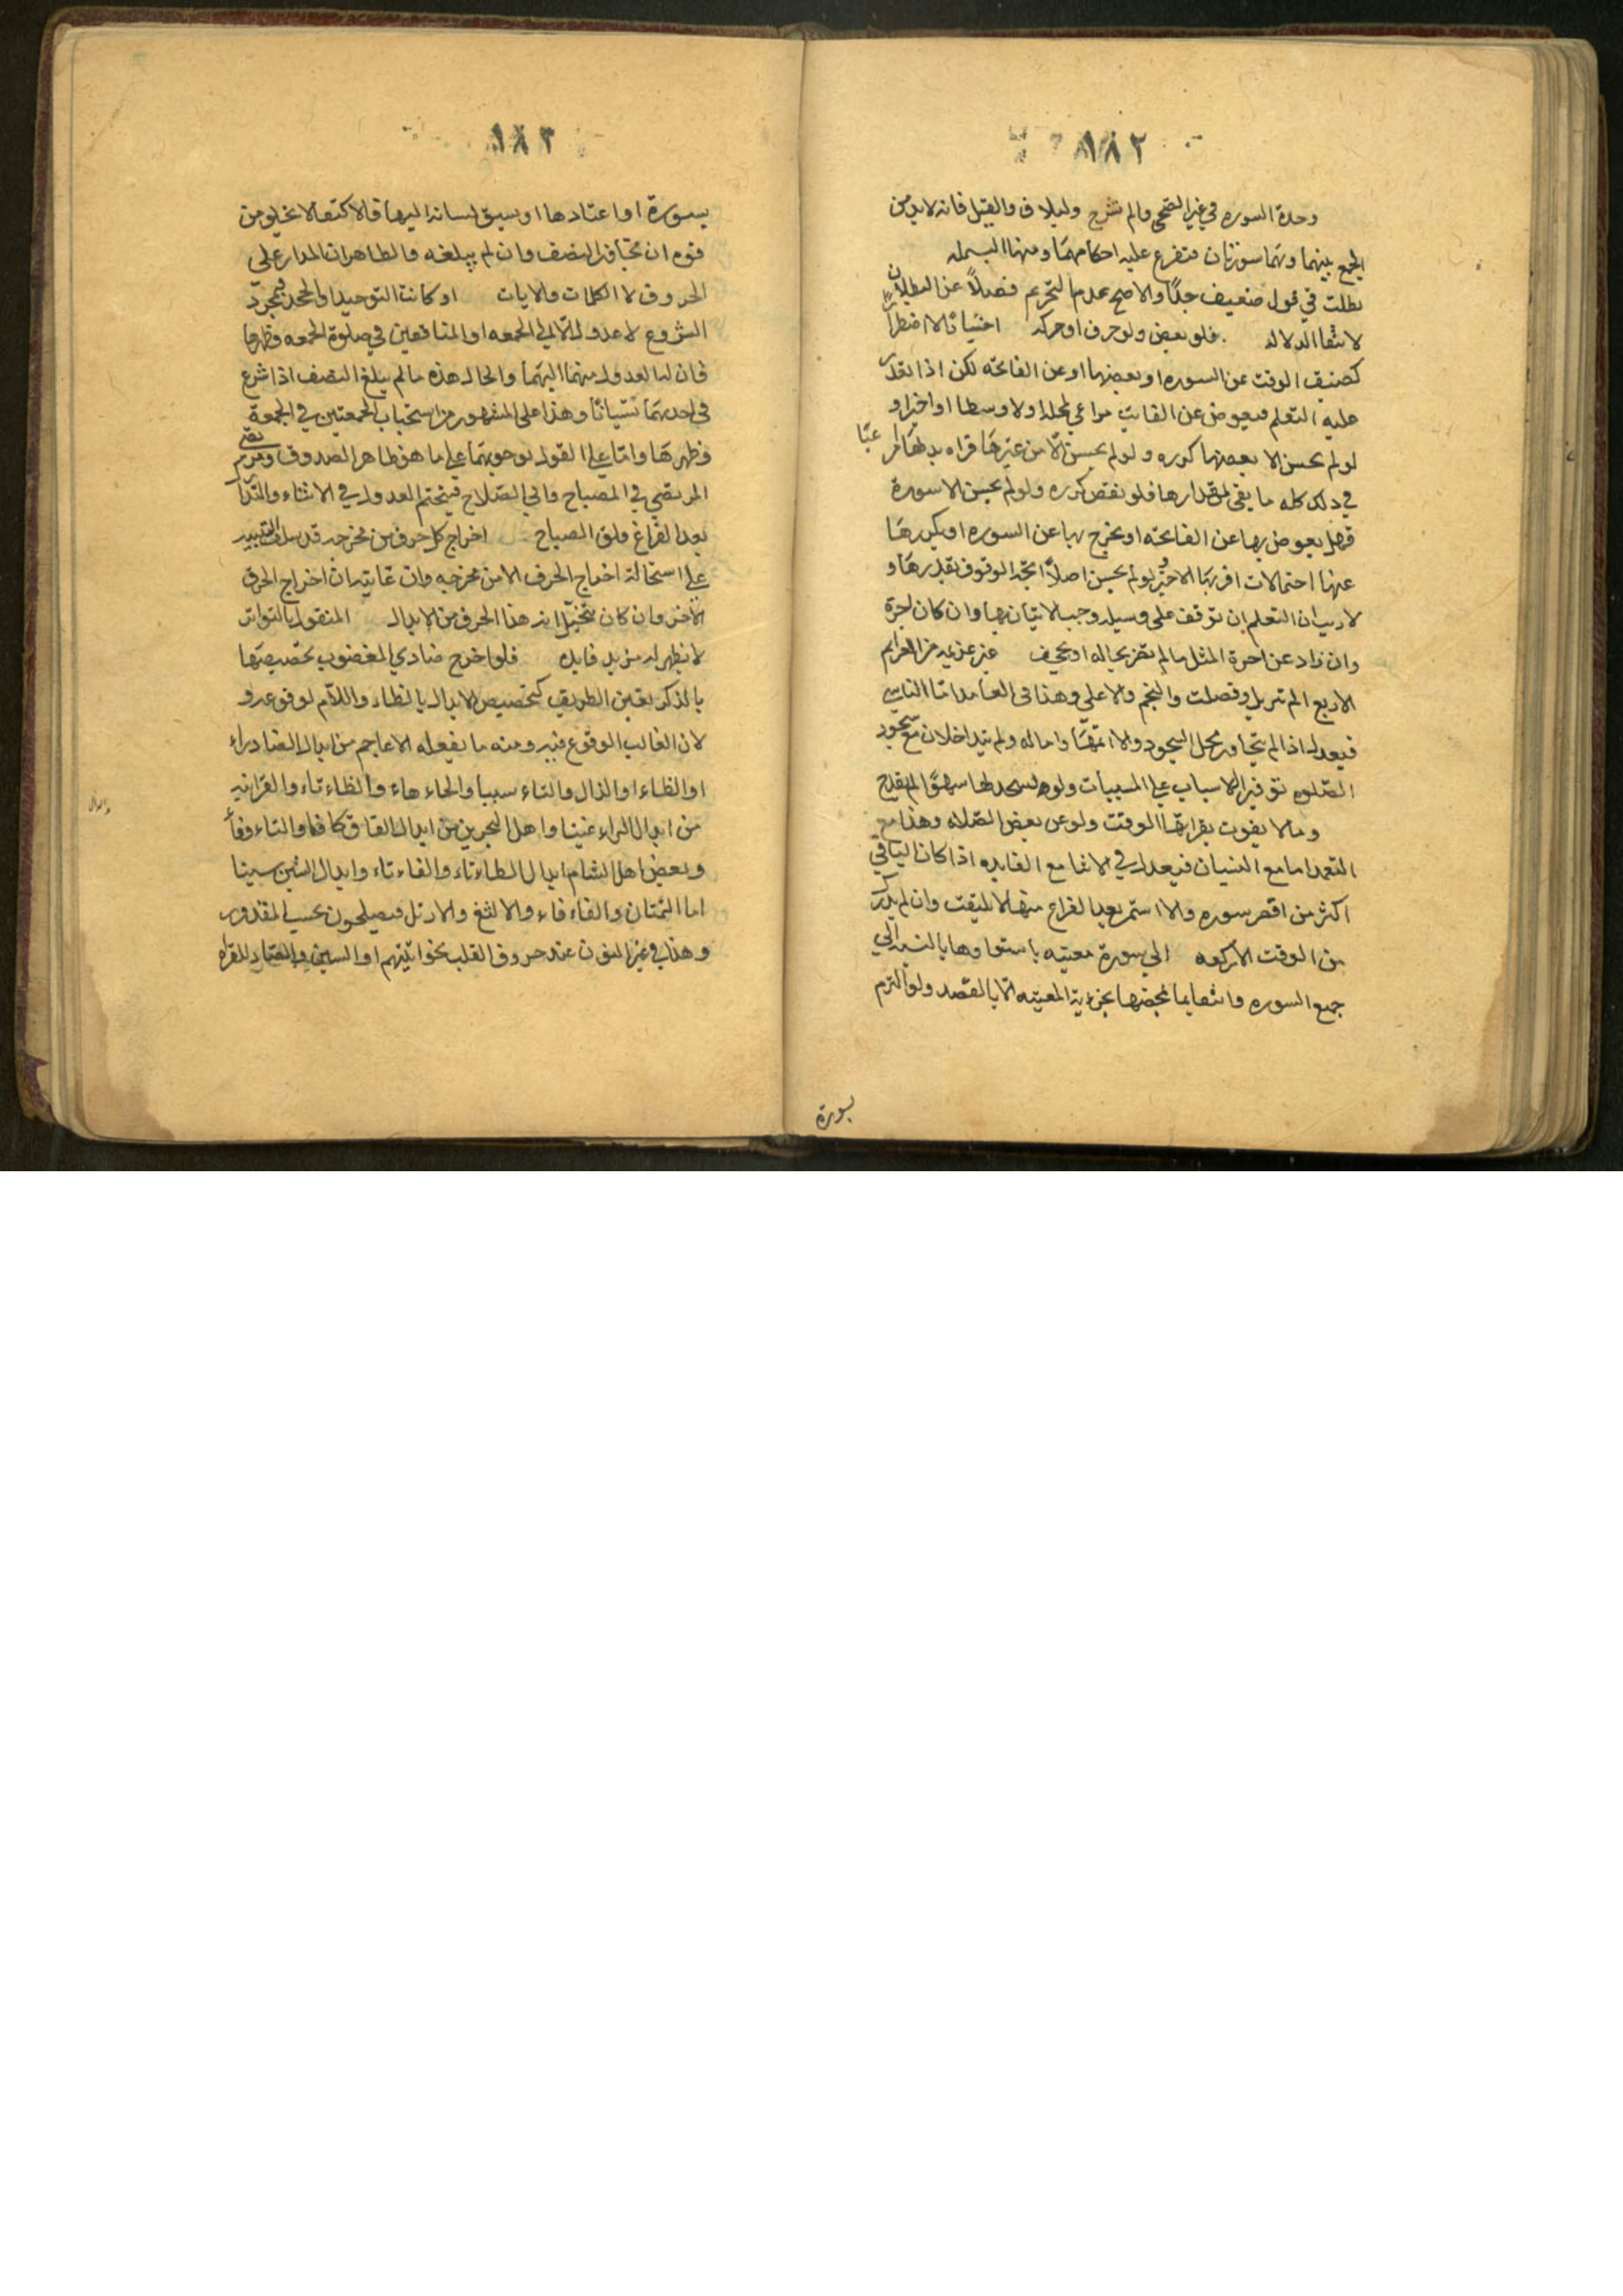 ١٨٢
وحدة السوره في غير الضحى والم نشرح ولئيلاف والفيل فانه لابد من
الجمع بينهما وهما سورتان فتفرع عليه احكامهما ومنها البسمله
بطلت في قول ضعيف جدًا والاصح عدم التحريم فضلاً عن البطلان
لانتفا الدلاله . فلو بعض ولو حرف او حركه اختيارًا لا اضطرارًا
كضيق الوقت عن السوره او بعضها او عن الفاتحه لكن اذا تعذر
عليه التعلم فيعوض عن الفايت مراعي لمحله اولا وسطا او اخرا و
لو لم يحسن الا بعضها كرره ولو لم يحسن الّا من غيرها قراه بدلها
في ذلك كله ما يفي لمقدارها فلو نقص كرره ولو لم يحسن الا سورة
فهل يعوض بها عن الفاتحه او يخرج بها عن السوره او يكررها
عنها احتمالات اقربها الاخير لو لم يحسن اصلاً اتجه الوقوف بقدرها و
لاريب ان التعلم ان توقف على وسيله وجب الاتيان بها وان كان اجرة
وان زاد عن اجرة المثل مالم تضر بحاله او يجحف غير عزيمه من العزايم
الاربع الم تنزيل وفصلت والنجم والاعلى وهذا في العامد اما الناسي
فيعدل اذا لم يتجاوز محل السجود والا اتمها واماله ولم تتداخلان مع سجود
الصلوه توفير الاسباب على المسببات ولو سجد لها سهوًا لم يقدح
ومالا يفوت بقرائتها الوقت ولو عن بعض الصلاه وهذا مع
التعمد اما مع النسيان فيعدل في الاثنا مع الفايده اذا كان الباقي
اكثر من اقصر سوره والا استمر بعد الفراغ منها لا يلتفت وان لم يدرك
من الوقت الا ركعه الى سورة معينه باستواوها بالنسبه الى
جميع السوره وانتفا بعضها بجزئية المعينه الّا بالقصد ولو التزم
بسورة
١٨٣
بسورة او اعتادها او سبق لسانه اليها فالاكتفا لا يخلو من
قوه ان تجاوز النصف وان لم يبلغه والظاهر ان المدار على
الحروف لا الكلمات والايات او كانت التوحيد او الجحد فبمجرد
الشروع لا عدول الّا الى الجمعه او المنافقين في صلوة الجمعه وظهرها
فان له العدول منهما اليهما والحال هذه مالم يبلغ النصف اذا شرع
في احديهما نسيانًا وهذا على المشهور من استحباب الجمعتين في الجمعة
وظهرها واما على القول بوجوبهما على ما هو ظاهر الصدوق
المرتضى في المصباح وابي الصلاح فيتحتم العدول في الاثناء والتدارك
بعد الفراغ وفاق المصباح اخراج كل حرف من مخرجه قد سلف التنبيه
على استحالة اخراج الحرف الا من مخرجه وان غايته ان اخراج الحرف
الاخر وان كان بتخيل انه هذا الحرف من الابدال المنقول بالتواتر
لا يظهر له مزيد فايده فلو اخرج ضادي المغضوب تخصيصها
بالذكر بعين الطريق كتخصيص الابدال بالظاء واللام لوقوعه و
لان الغالب الوقوع فيه ومنه ما يفعله الاعاجم من ابدال الضاد زاء
او الظاء او الذال والثاء سيبا والحاء هاء والطاء تاء والقراتيه
من ابدال الراء غينا واهل البحرين من ابدال القاف كافا والثاء وفاءً
وبعض اهل الشام ابدال الطاء تاء والفاء ثاء وابدال الشين سينا
اما التمتام والفأفاء والالثغ والارتل فيصلحون بحسب المقدور
وهذا في غير النون عند حروف القلب نحو انبئهم او السين والصاد للقراء